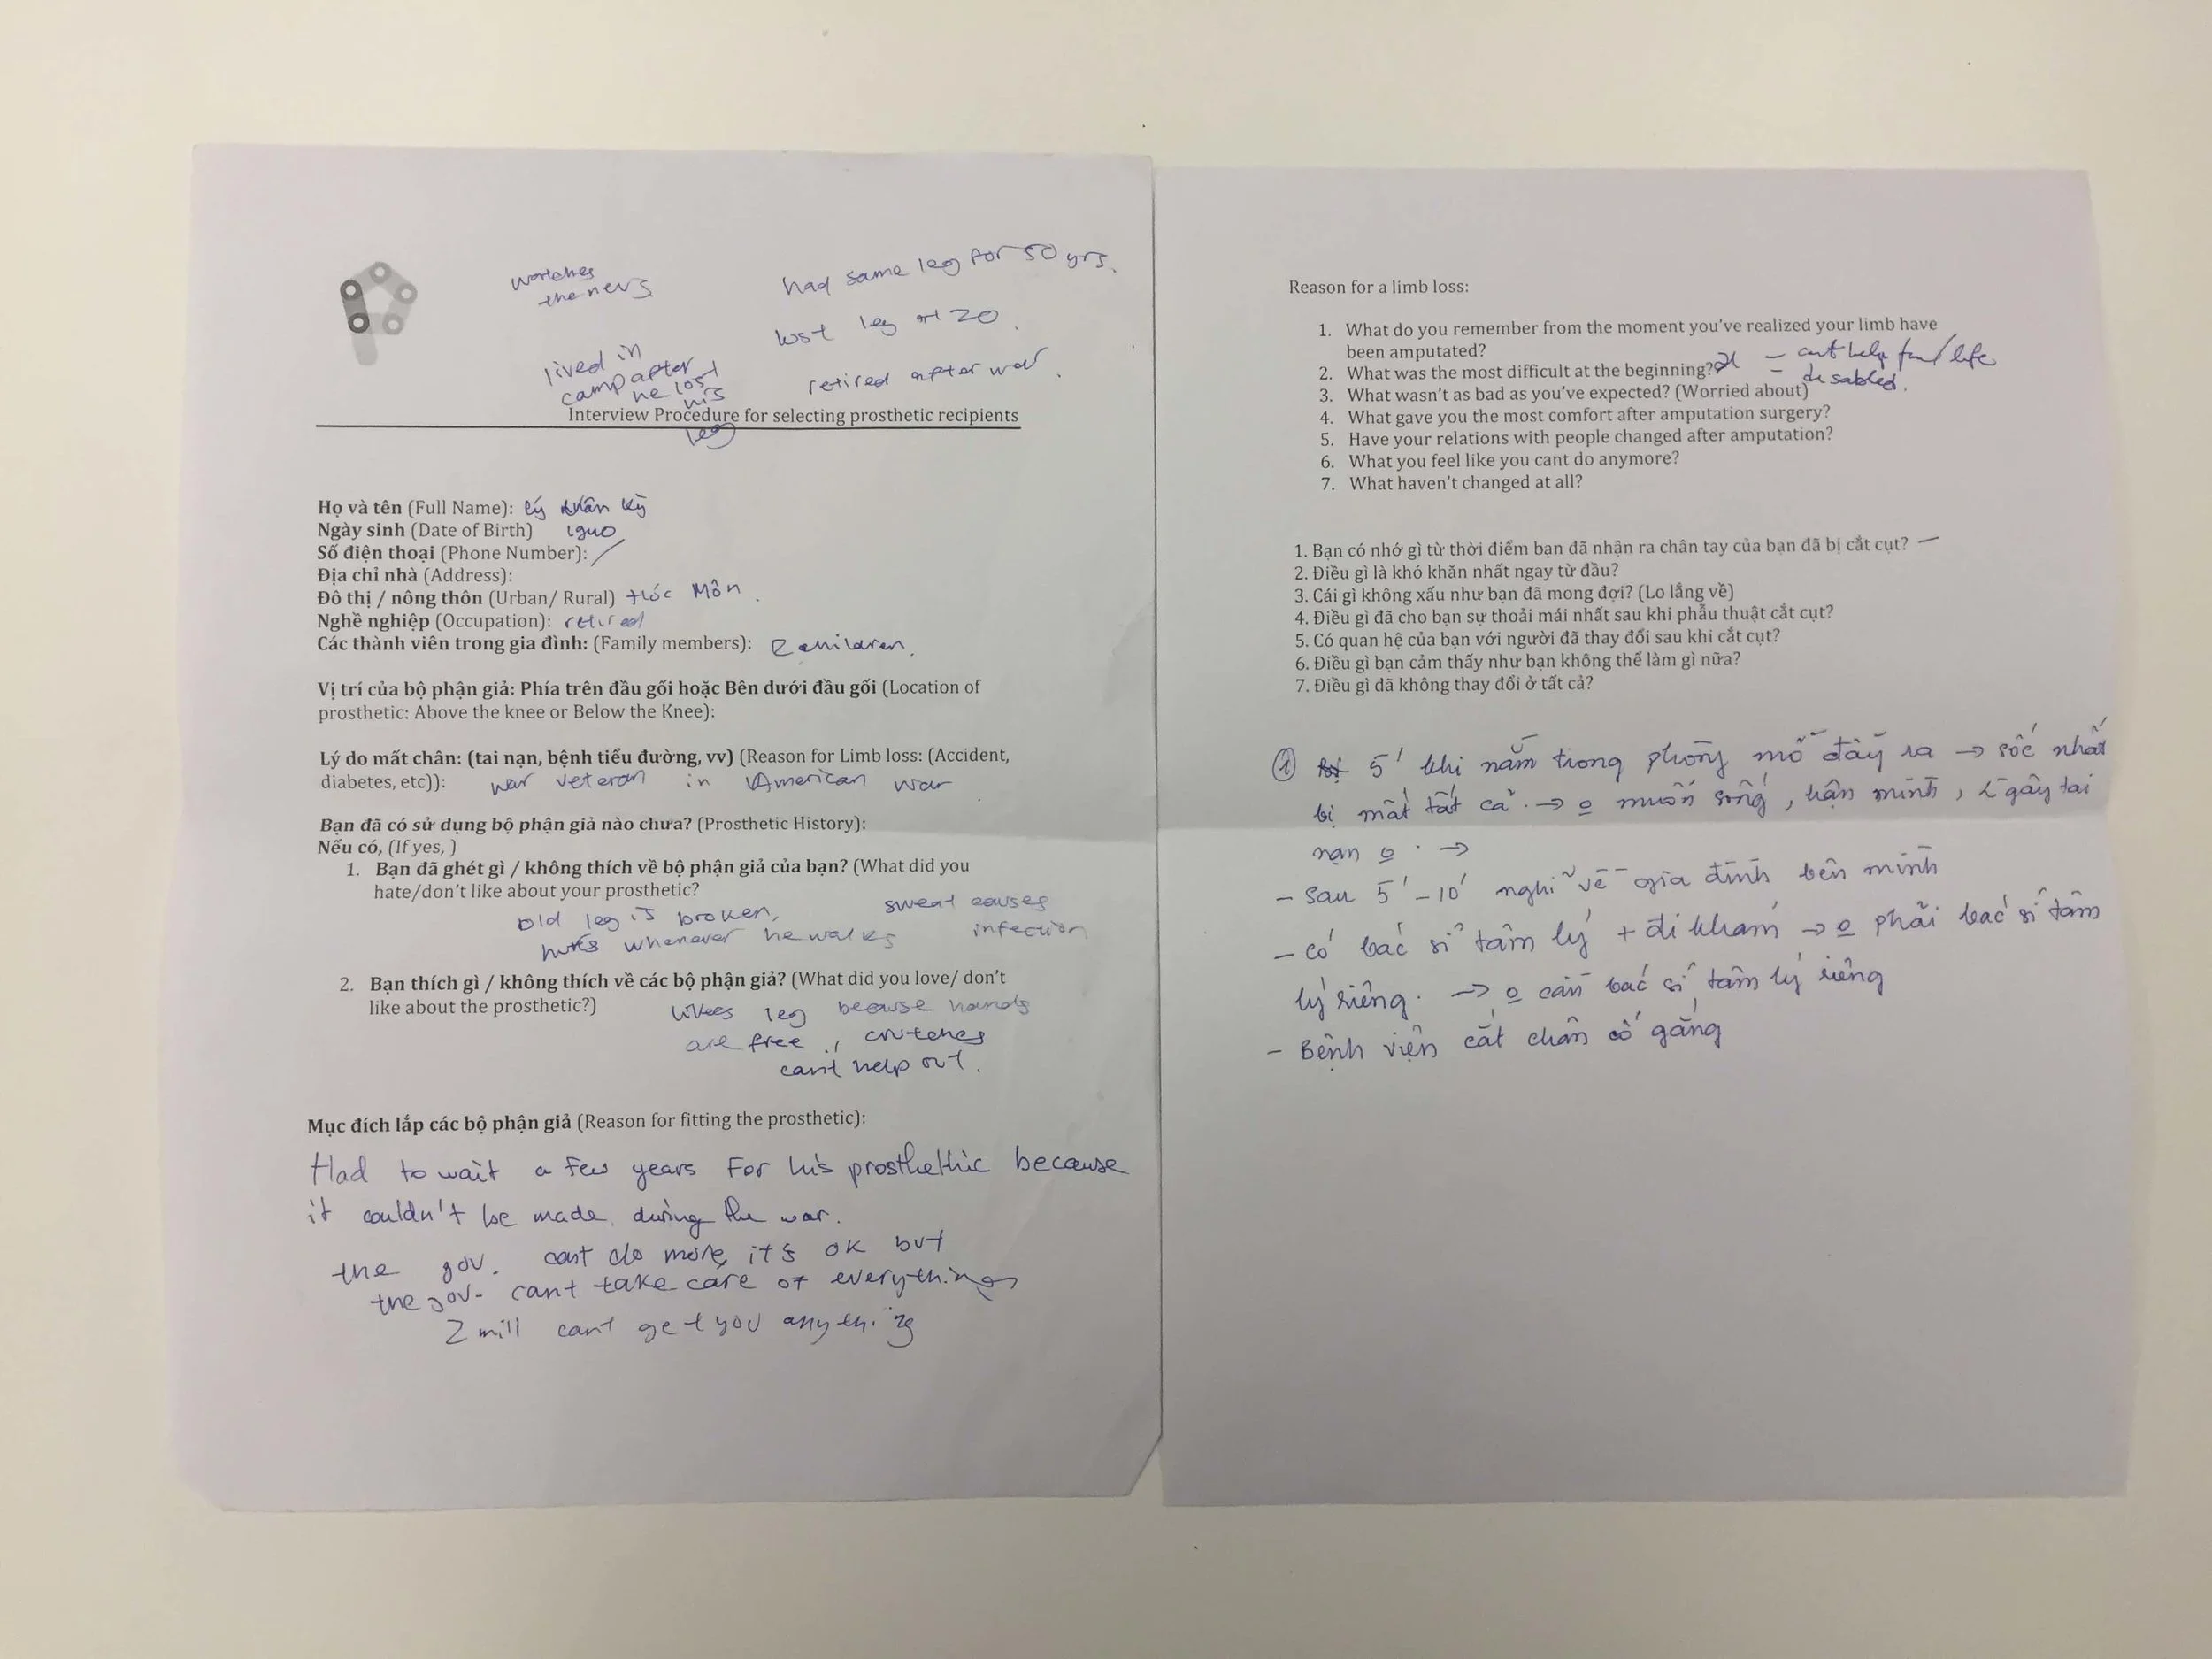 watches
the news
had same leg for 50 yrs.
lost leg at 20.
lived in
camp after
he lost
his
leg
retired after war.
Interview Procedure for selecting prosthetic recipients
Họ và tên (Full Name): Lý Kỳ
Ngày sinh (Date of Birth) 1940
Số điện thoại (Phone Number): /
Địa chỉ nhà (Address):
Đô thị / nông thôn (Urban/ Rural) Hóc Môn.
Nghề nghiệp (Occupation): retired
Các thành viên trong gia đình: (Family members): 2 children.
Vị trí của bộ phận giả: Phía trên đầu gối hoặc Bên dưới đầu gối (Location of
prosthetic: Above the knee or Below the Knee):
Lý do mất chân: (tai nạn, bệnh tiểu đường, vv) (Reason for Limb loss: (Accident,
diabetes, etc)): war veteran in American war
Bạn đã có sử dụng bộ phận giả nào chưa? (Prosthetic History):
Nếu có, (If yes, )
1. Bạn đã ghét gì / không thích về bộ phận giả của bạn? (What did you
hate/don't like about your prosthetic?
old leg is broken,
hurts whenever he walks
sweat causes
infection
2. Bạn thích gì / không thích về các bộ phận giả? (What did you love/ don't
like about the prosthetic?) likes leg because hands
are free, crutches
can't help out.
Mục đích lắp các bộ phận giả (Reason for fitting the prosthetic):
Had to wait a few years For his prosthethic because
it couldn't be made during the war.
the gov. cant do more, it's OK but
the gov- cant take care of everything
2 mill cant get you anything
Reason for a limb loss:
1. What do you remember from the moment you've realized your limb have
been amputated?
2. What was the most difficult at the beginning? – can't help life
– disabled.
3. What wasn't as bad as you've expected? (Worried about)
4. What gave you the most comfort after amputation surgery?
5. Have your relations with people changed after amputation?
6. What you feel like you cant do anymore?
7. What haven't changed at all?
1. Bạn có nhớ gì từ thời điểm bạn đã nhận ra chân tay của bạn đã bị cắt cụt? –
2. Điều gì là khó khăn nhất ngay từ đầu?
3. Cái gì không xấu như bạn đã mong đợi? (Lo lắng về)
4. Điều gì đã cho bạn sự thoải mái nhất sau khi phẫu thuật cắt cụt?
5. Có quan hệ của bạn với người đã thay đổi sau khi cắt cụt?
6. Điều gì bạn cảm thấy như bạn không thể làm gì nữa?
7. Điều gì đã không thay đổi ở tất cả?
① 5' khi nằm trong phòng mổ đẩy ra → sốc nhất
bị mất tất cả. → o muốn sống, hận mình, gây tai
nạn o. →
– sau 5' – 10' nghĩ về gia đình bên mình
– có bác sĩ tâm lý + đi khám → o phải bác sĩ tâm
lý riêng. → o cần bác sĩ tâm lý riêng
– Bệnh viện cắt chân cố gắng